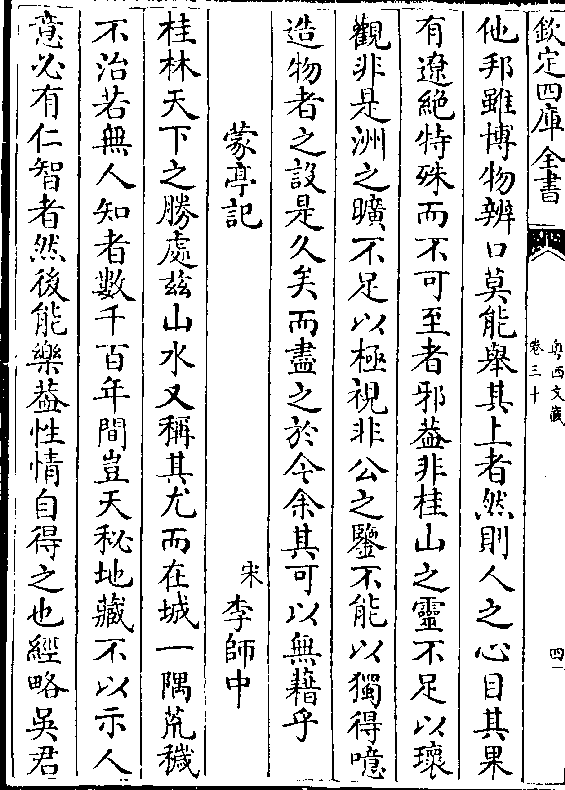 欽定四庫全書
粵西文載
卷三十
四
他邦雖博物辨口莫能舉其上者然則人之心目其果
有遼絶特殊而不可至者邪葢非桂山之靈不足以瓌
觀非是洲之曠不足以極視非公之鑒不能以獨得噫
造物者之設是久矣而盡之於今余其可以無藉乎
蒙亭記
宋李師中
桂林天下之勝處兹山水又稱其尤而在城一隅荒穢
不治若無人知者數千百年間豈天秘地藏不以示人
意必有仁智者然後能樂葢性情自得之也經略吳君